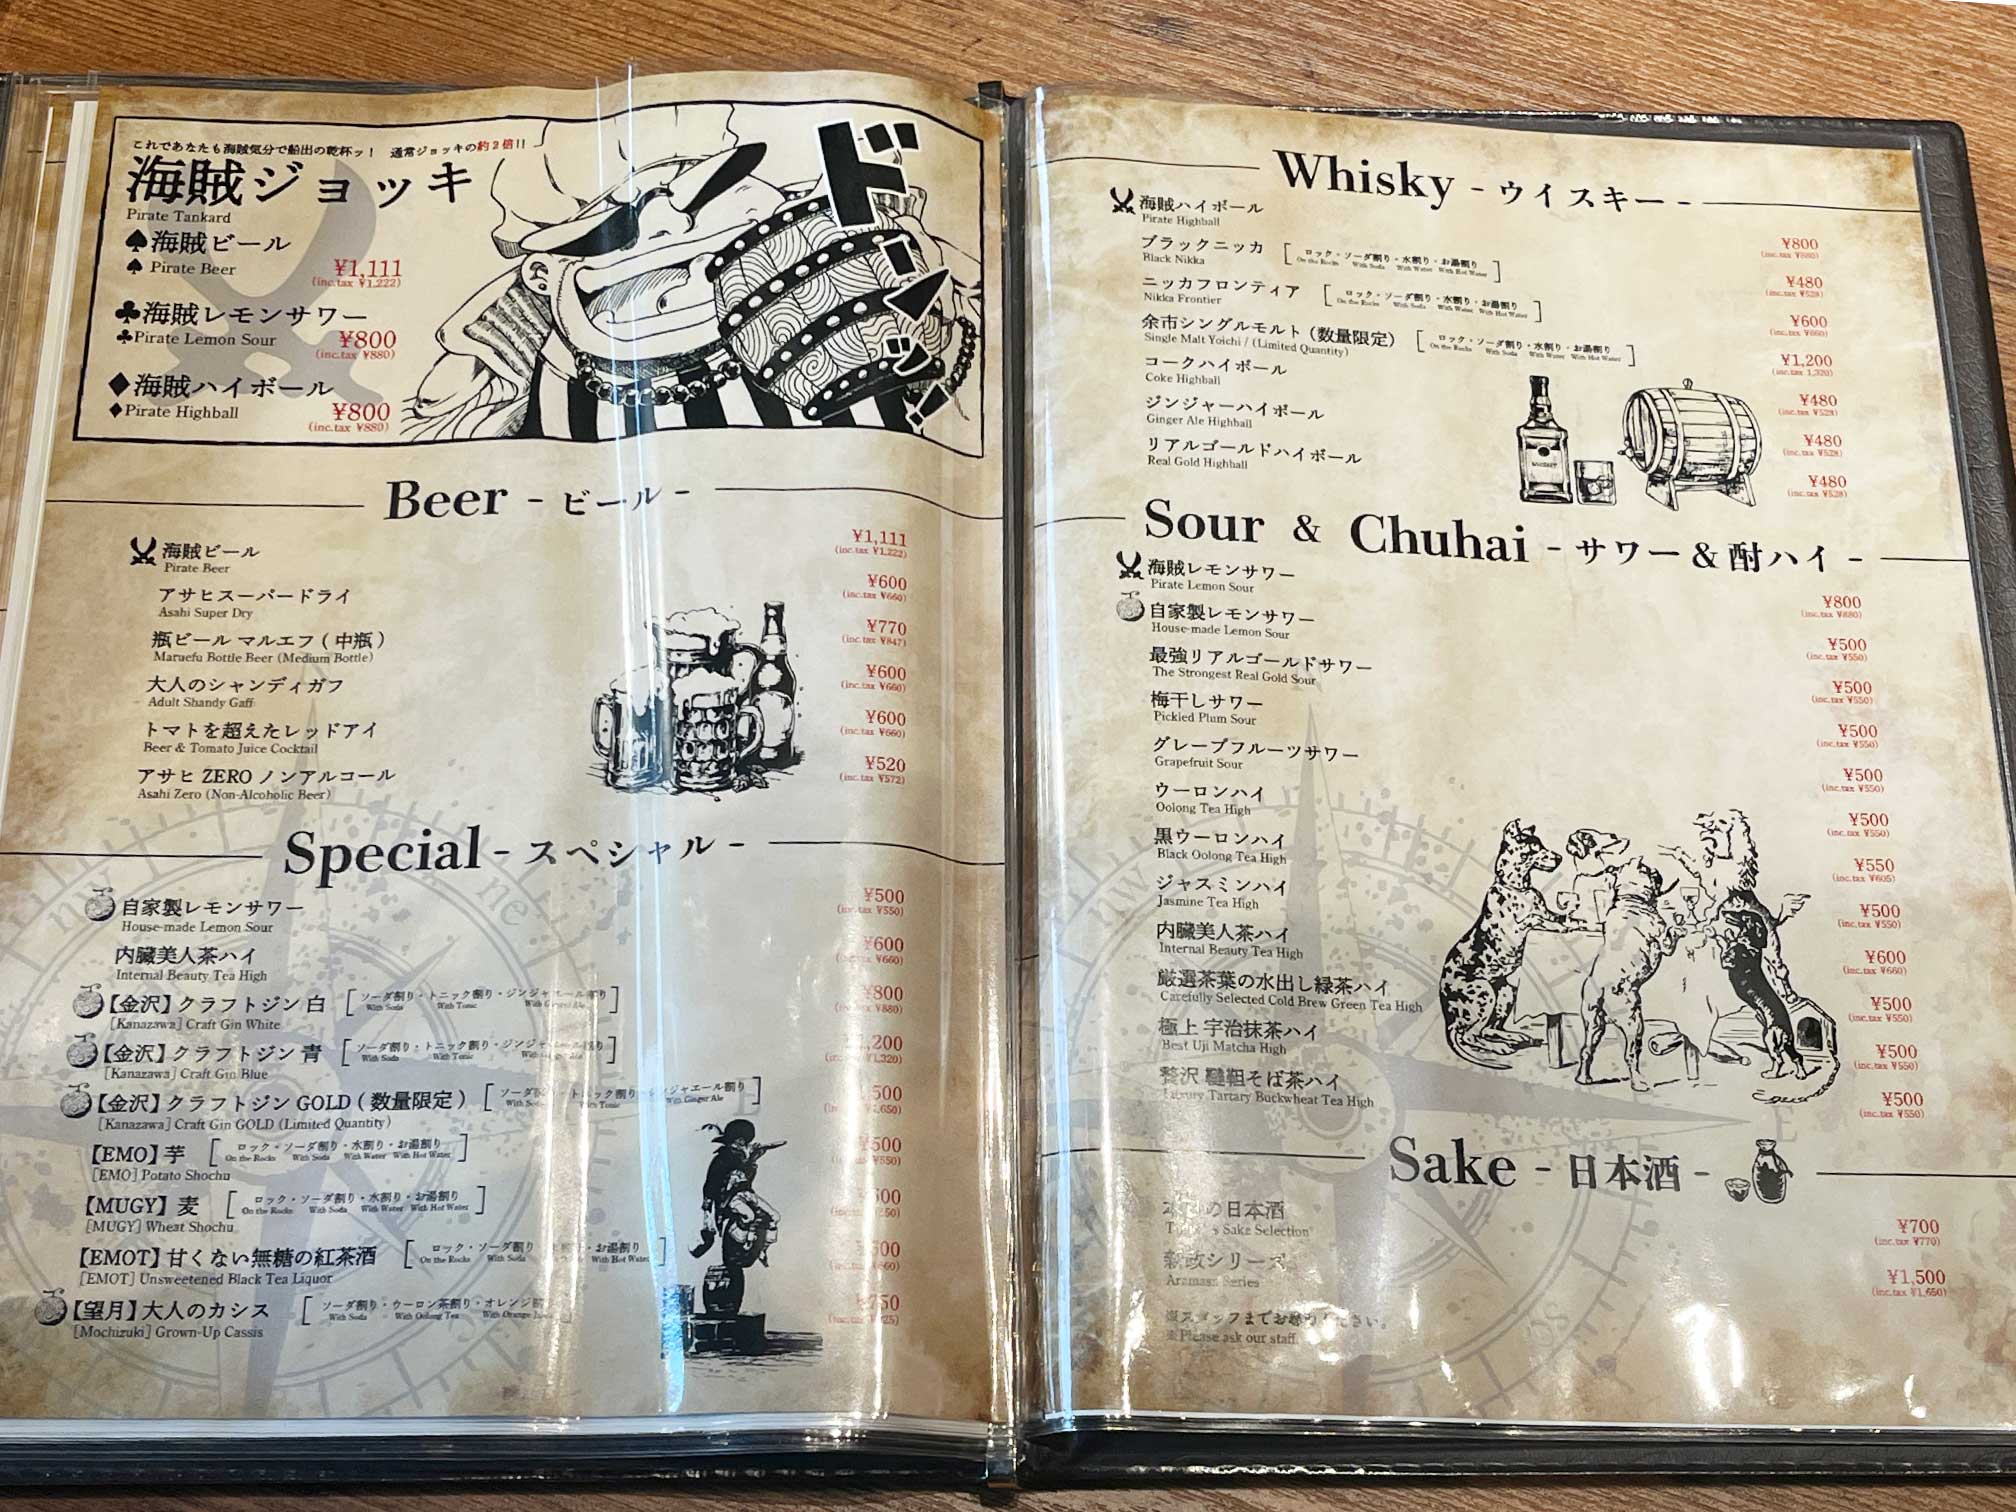 これであなたも海賊気分で船出の乾杯ッ！ 通常ジョッキの約2倍!!
海賊ジョッキ
Pirate Tankard
♠海賊ビール
♠ Pirate Beer ¥1,111
(inc.tax ¥1,222)
♣海賊レモンサワー
♣Pirate Lemon Sour ¥800
(inc.tax ¥880)
♦海賊ハイボール
♦Pirate Highball ¥800
(inc.tax ¥880)
ドーンッ!!
Beer - ビール -
海賊ビール ¥1,111
Pirate Beer (inc.tax ¥1,222)
アサヒスーパードライ ¥600
Asahi Super Dry (inc.tax ¥660)
瓶ビール マルエフ ( 中瓶 ) ¥770
Maruefu Bottle Beer (Medium Bottle) (inc.tax ¥847)
大人のシャンディガフ ¥600
Adult Shandy Gaff (inc.tax ¥660)
トマトを超えたレッドアイ ¥600
Beer & Tomato Juice Cocktail (inc.tax ¥660)
アサヒ ZERO ノンアルコール ¥520
Asahi Zero (Non-Alcoholic Beer) (inc.tax ¥572)
Special - スペシャル -
自家製レモンサワー ¥500
House-made Lemon Sour (inc.tax ¥550)
内臓美人茶ハイ ¥600
Internal Beauty Tea High (inc.tax ¥660)
【金沢】クラフトジン 白 [ ソーダ割り・トニック割り・ジンジャエール割り ] ¥800
[Kanazawa] Craft Gin White With Soda With Tonic With Ginger Ale (inc.tax ¥880)
【金沢】クラフトジン 青 [ ソーダ割り・トニック割り・ ] ,200
[Kanazawa] Craft Gin Blue With Soda With Tonic ¥1,320)
【金沢】クラフトジン GOLD ( 数量限定 ) [ ソーダ割り・トニック割り・ジンジャエール割り ] 500
[Kanazawa] Craft Gin GOLD (Limited Quantity) With Soda With Tonic With Ginger Ale ¥1,650)
【EMO】芋 [ ロック・ソーダ割り・水割り・お湯割り ] ¥500
[EMO] Potato Shochu On the Rocks With Soda With Water With Hot Water (inc.tax ¥550)
【MUGY】麦 [ ロック・ソーダ割り・水割り・お湯割り ]
[MUGY] Wheat Shochu On the Rocks With Soda With Water With Hot Water
【EMOT】甘くない無糖の紅茶酒 [ ロック・ソーダ割り お湯割り ]
[EMOT] Unsweetened Black Tea Liquor On the Rocks With Soda With Hot Water
【望月】大人のカシス [ ソーダ割り・ウーロン茶割り・オレンジ割り ] ¥750
[Mochizuki] Grown-Up Cassis With Soda With Oolong Tea With Orange
Whisky - ウイスキー -
海賊ハイボール ¥800
Pirate Highball (inc.tax ¥880)
ブラックニッカ [ ロック・ソーダ割り・水割り・お湯割り ] ¥480
Black Nikka On the Rocks With Soda With Water With Hot Water (inc.tax ¥528)
ニッカフロンティア [ ロック・ソーダ割り・水割り・お湯割り ] ¥600
Nikka Frontier On the Rocks With Soda With Water With Hot Water (inc.tax ¥660)
余市シングルモルト（数量限定） [ ロック・ソーダ割り・水割り・お湯割り ] ¥1,200
Single Malt Yoichi / (Limited Quantity) On the Rocks With Soda With Water With Hot Water (inc.tax 1,320)
コークハイボール ¥480
Coke Highball (inc.tax ¥528)
ジンジャーハイボール ¥480
Ginger Ale Highball (inc.tax ¥528)
リアルゴールドハイボール ¥480
Real Gold Highball (inc.tax ¥528)
WHISKEY
Sour & Chuhai - サワー & 酎ハイ -
海賊レモンサワー ¥800
Pirate Lemon Sour (inc.tax ¥880)
自家製レモンサワー ¥500
House-made Lemon Sour (inc.tax ¥550)
最強リアルゴールドサワー ¥500
The Strongest Real Gold Sour (inc.tax ¥550)
梅干しサワー ¥500
Pickled Plum Sour (inc.tax ¥550)
グレープフルーツサワー ¥500
Grapefruit Sour (inc.tax ¥550)
ウーロンハイ ¥500
Oolong Tea High (inc.tax ¥550)
黒ウーロンハイ ¥550
Black Oolong Tea High (inc.tax ¥605)
ジャスミンハイ ¥500
Jasmine Tea High (inc.tax ¥550)
内臓美人茶ハイ ¥600
Internal Beauty Tea High (inc.tax ¥660)
厳選茶葉の水出し緑茶ハイ ¥500
Carefully Selected Cold Brew Green Tea High (inc.tax ¥550)
極上 宇治抹茶ハイ ¥500
Best Uji Matcha High (inc.tax ¥550)
贅沢 韃靼そば茶ハイ ¥500
Luxury Tartary Buckwheat Tea High (inc.tax ¥550)
Sake - 日本酒 -
の日本酒 ¥700
Sake Selection (inc.tax ¥770)
新政シリーズ ¥1,500
Aramasa Series (inc.tax ¥1,650)
※スタッフまでお尋ねください。
※Please ask our staff.